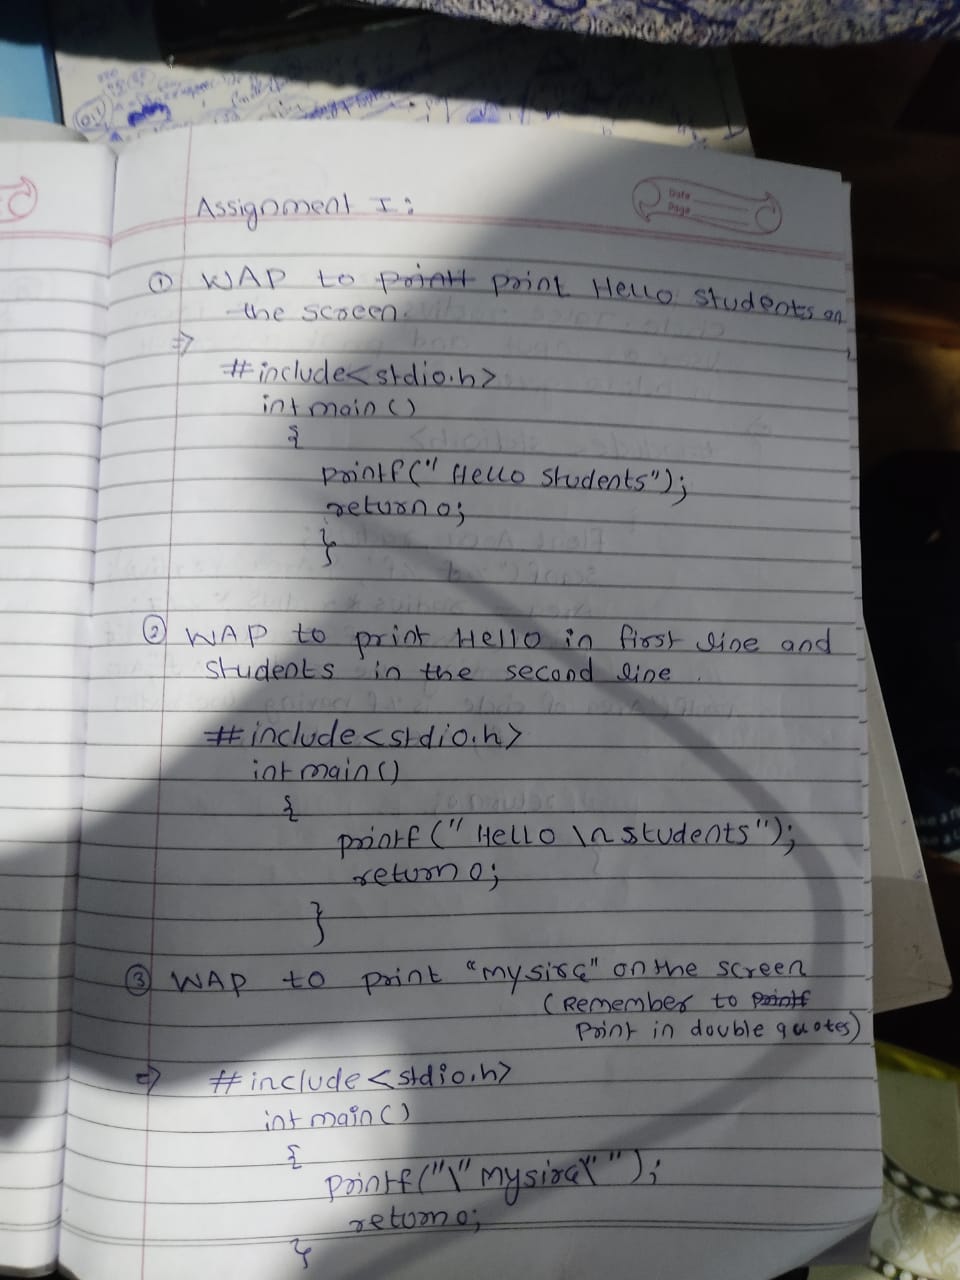 Assignment I:
Date
Page
① WAP to print Hello students on
the screen.
⇒
#include<stdio.h>
int main()
{
printf(" Hello Students");
return 0;
}
② WAP to print Hello in first line and
students in the second line.
#include<stdio.h>
int main()
{
printf(" Hello \n students");
return 0;
}
③ WAP to print "mysirG" on the screen
(Remember to
Print in double quotes)
⇒ #include<stdio.h>
int main()
{
printf("\"mysirG\" ");
return 0;
}